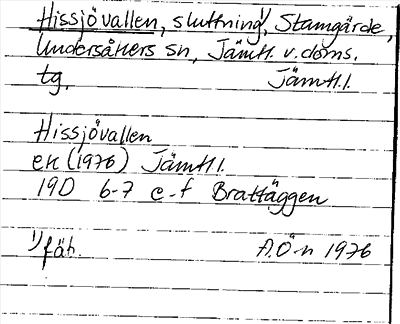 Hissjövallen, sluttning¹⁾, Stamgärde,
Undersåkers sn, Jämtl. v. doms.
tg. Jämtl. l.
Hissjövallen
ek (1976) Jämtl l.
19D 6-7 e-f Brattäggen
¹⁾fäb. A.Ö-n 1976